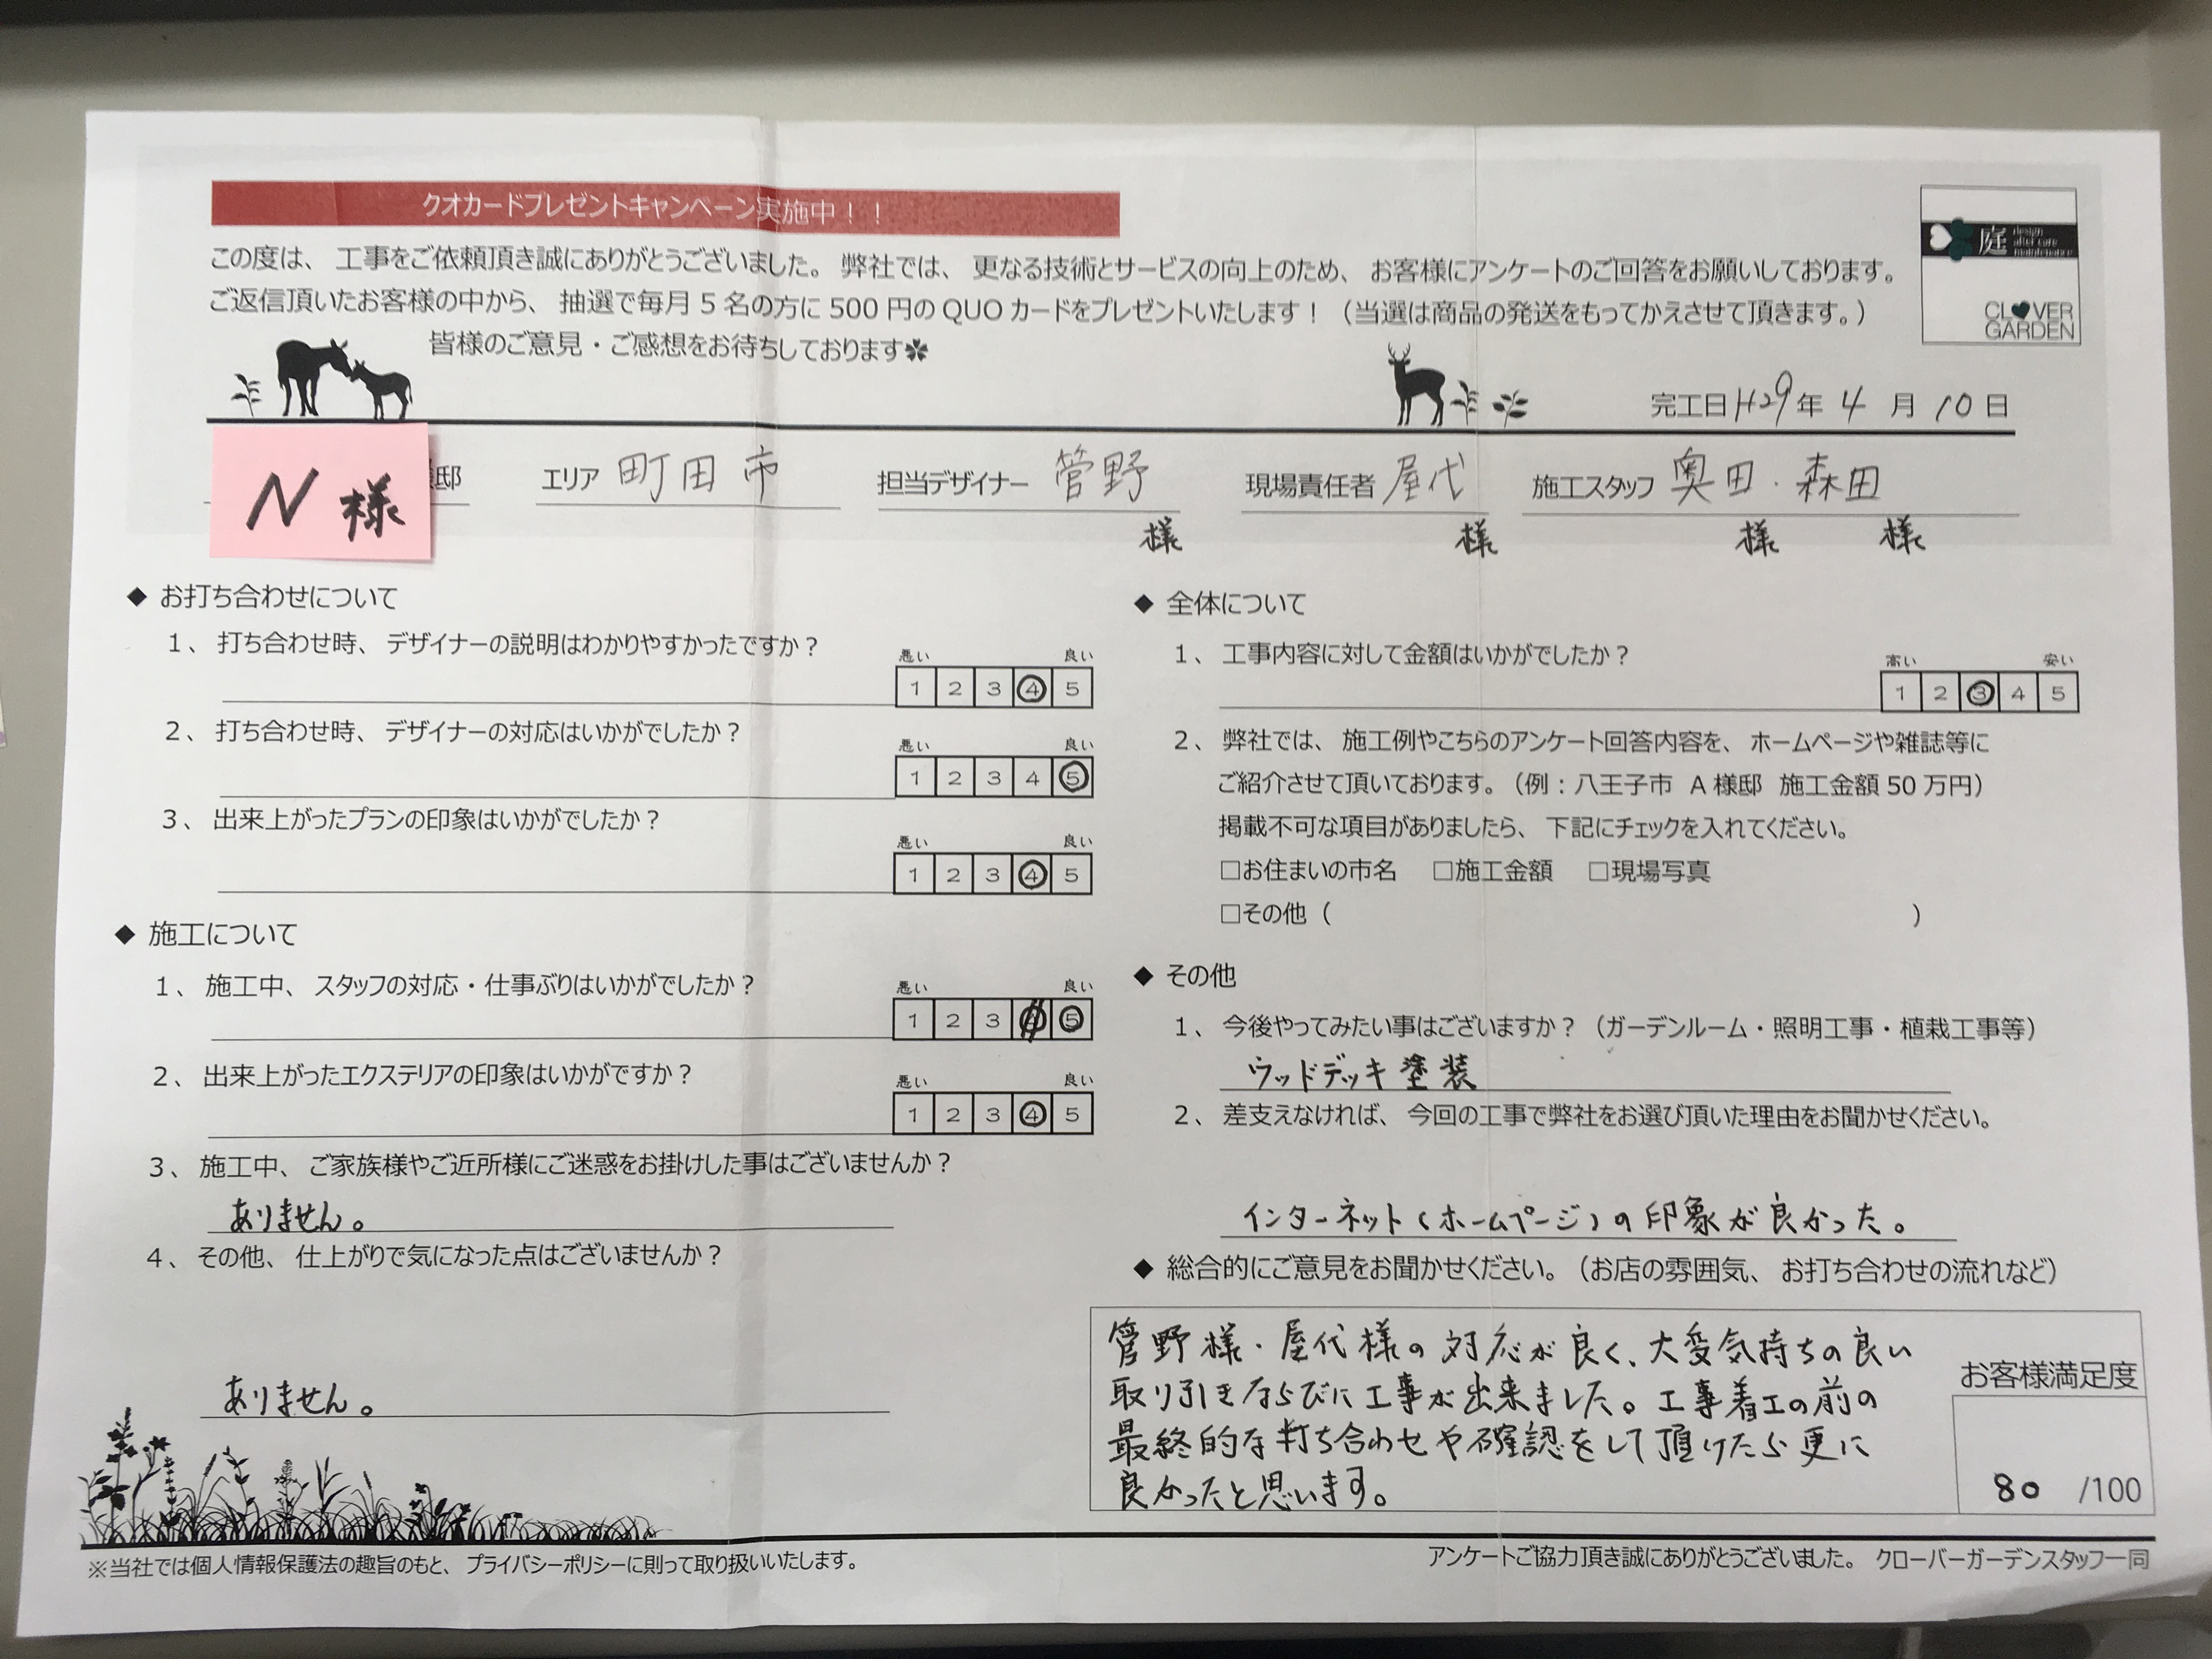 クオカードプレゼントキャンペーン実施中！！
この度は、工事をご依頼頂き誠にありがとうございました。弊社では、更なる技術とサービスの向上のため、お客様にアンケートのご回答をお願いしております。
ご返信頂いたお客様の中から、抽選で毎月5名の方に500円のQUOカードをプレゼントいたします！（当選は商品の発送をもってかえさせて頂きます。）
皆様のご意見・ご感想をお待ちしております
庭 design after care maintenance
CLOVER GARDEN
完工日 H29年 4月 10日
N様 様邸 エリア 町田市 担当デザイナー 管野様 現場責任者 屋代様 施工スタッフ 奥田様・森田様
◆ お打ち合わせについて
1、打ち合わせ時、デザイナーの説明はわかりやすかったですか？
悪い 良い
1 2 3 4 5
2、打ち合わせ時、デザイナーの対応はいかがでしたか？
悪い 良い
1 2 3 4 5
3、出来上がったプランの印象はいかがでしたか？
悪い 良い
1 2 3 4 5
◆ 施工について
1、施工中、スタッフの対応・仕事ぶりはいかがでしたか？
悪い 良い
1 2 3 4 5
2、出来上がったエクステリアの印象はいかがですか？
悪い 良い
1 2 3 4 5
3、施工中、ご家族様やご近所様にご迷惑をお掛けした事はございませんか？
ありません。
4、その他、仕上がりで気になった点はございませんか？
ありません。
◆ 全体について
1、工事内容に対して金額はいかがでしたか？
高い 安い
1 2 3 4 5
2、弊社では、施工例やこちらのアンケート回答内容を、ホームページや雑誌等に
ご紹介させて頂いております。（例：八王子市 A様邸 施工金額50万円）
掲載不可な項目がありましたら、下記にチェックを入れてください。
□お住まいの市名 □施工金額 □現場写真
□その他（ ）
◆ その他
1、今後やってみたい事はございますか？（ガーデンルーム・照明工事・植栽工事等）
ウッドデッキ塗装
2、差支えなければ、今回の工事で弊社をお選び頂いた理由をお聞かせください。
インターネット（ホームページ）の印象が良かった。
◆ 総合的にご意見をお聞かせください。（お店の雰囲気、お打ち合わせの流れなど）
管野様・屋代様の対応が良く、大変気持ちの良い
取り引きならびに工事が出来ました。工事着工の前の
最終的な打ち合わせや確認をして頂けたら更に
良かったと思います。
お客様満足度
80 /100
※当社では個人情報保護法の趣旨のもと、プライバシーポリシーに則って取り扱いいたします。
アンケートご協力頂き誠にありがとうございました。 クローバーガーデンスタッフ一同